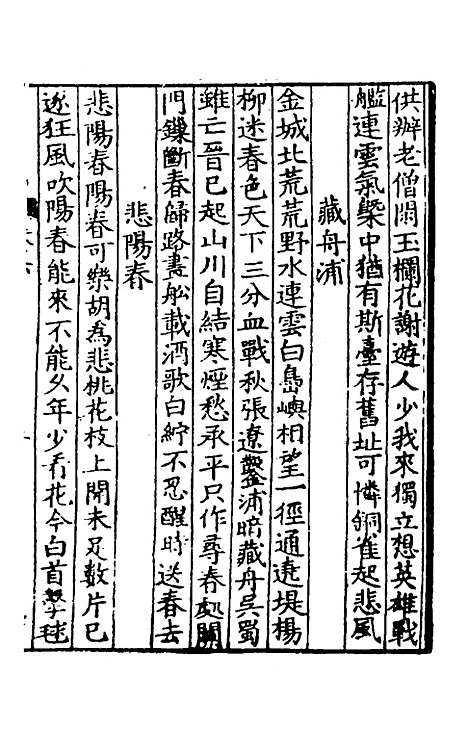 供辦老僧閉玉欄花謝遊人少我來獨立想英雄戰
艦連雲氣槩中猶有斯臺存舊址可憐銅雀起悲風
藏舟浦
金城北荒荒野水連雲白島嶼相望一徑通遶堤楊
柳迷春色天下三分血戰秋張遼鑿浦暗藏舟吳蜀
雖亡晉已起山川自結寒煙愁承平只作尋春處閘
門鏁斷春歸路畫舩載酒歌白紵不忍醒時送春去
悲陽春
悲陽春陽春可樂胡為悲桃花枝上開未足數片已
逐狂風吹陽春能來不能久年少看花今白首擊毬